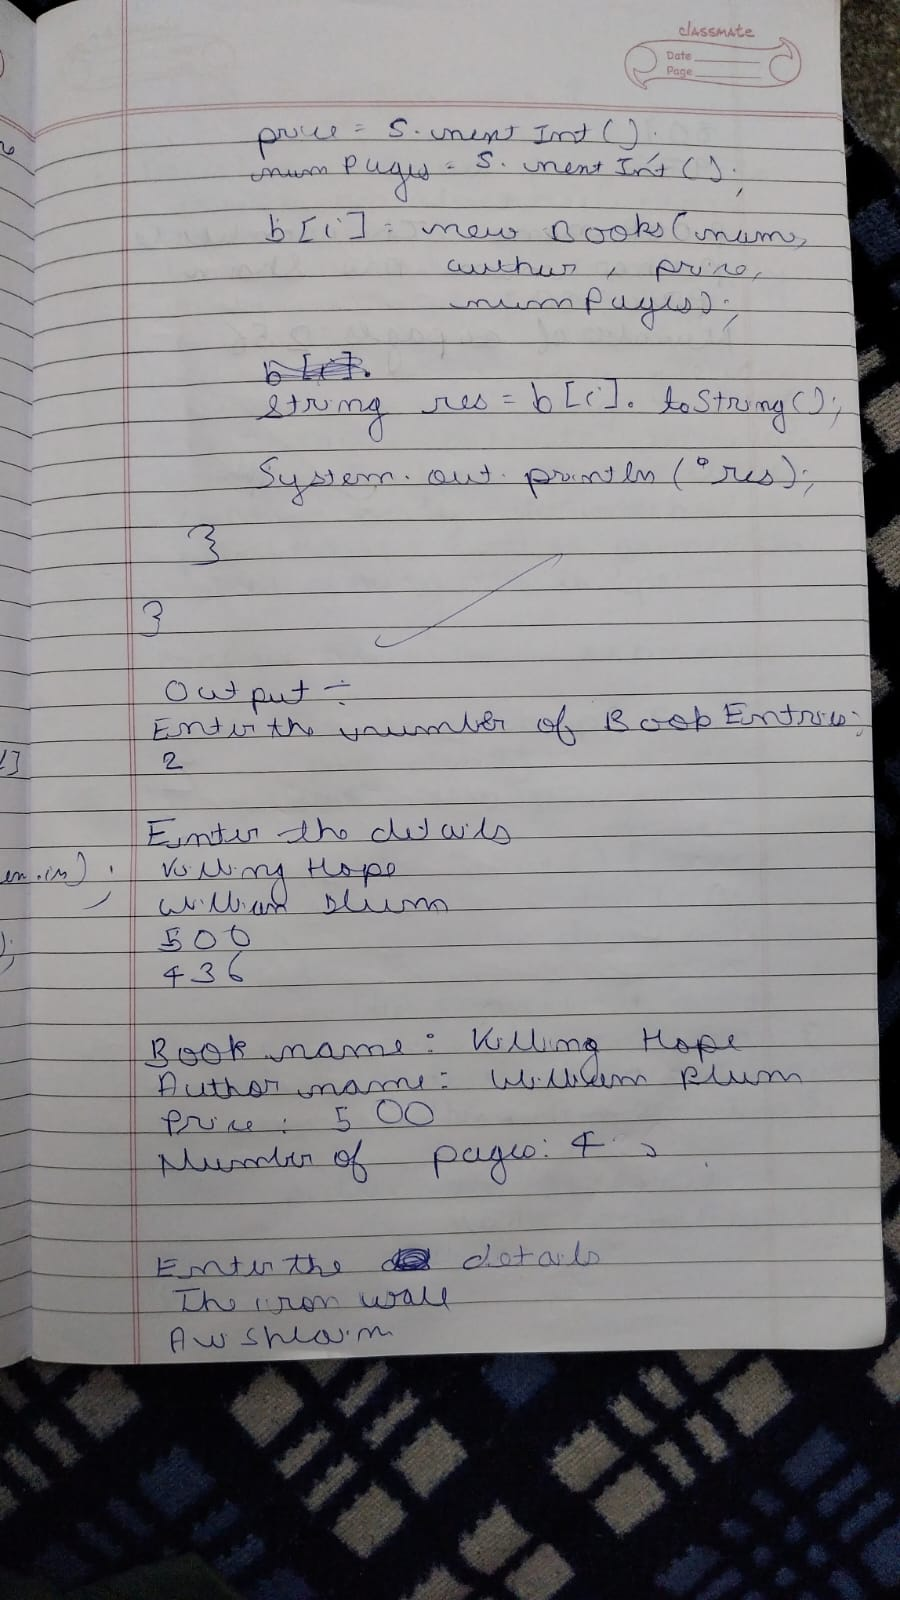 classmate
Date
Page
price = S.nextInt();
numPages = S.nextInt();
b[i] = new Books(name,
author, price,
numPages);
String res = b[i].toString();
System.out.println(res);
}
}
Output:-
Enter the number of Book Entries:
2
Enter the details
Killing Hope
William Blum
500
436
Book name: Killing Hope
Author name: William Blum
Price: 500
Number of pages: 4
Enter the details
The iron wall
Avi Shlaim
en.in);
);